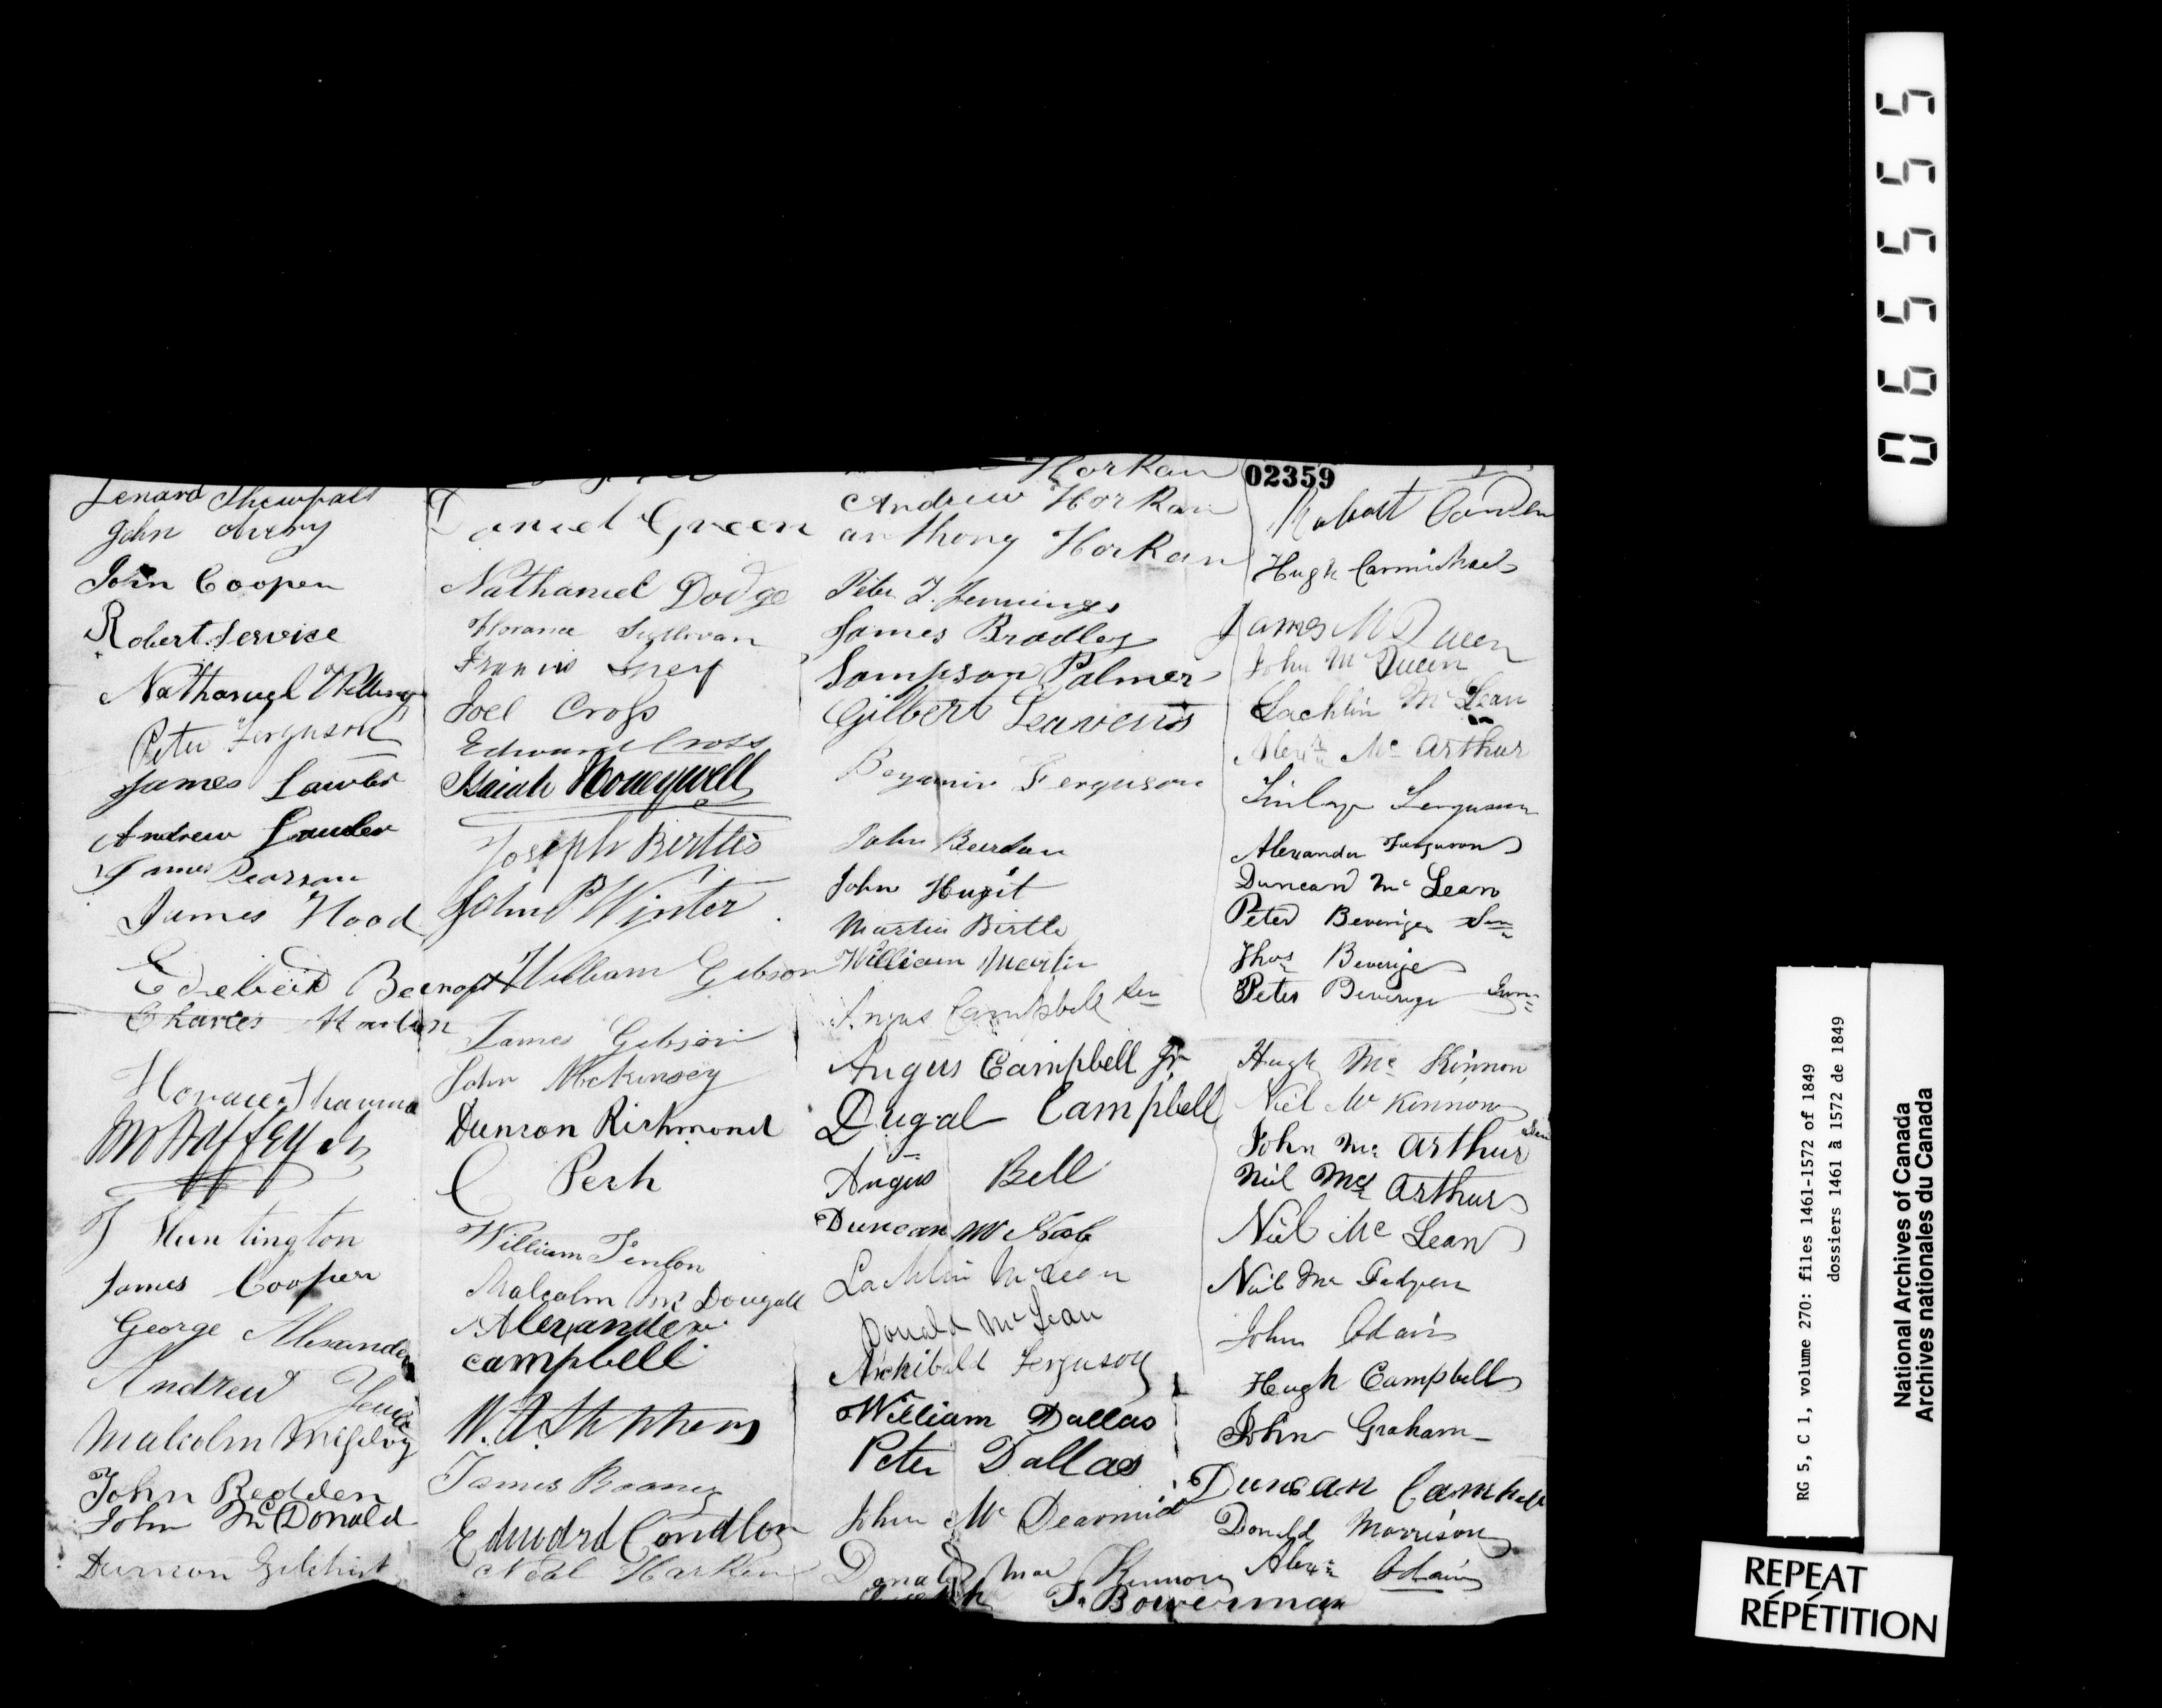 Lenard
John
John Cooper
Robert Service
Nathanuel
Peter Ferguson
James Lawder
Andrew Lauder
James Pearson
James Hood
Charles
Horace
T Huntington
James Cooper
George Alexander
Andrew
Malcolm
John Redden
John McDonald
Duncan Gilchrist
Daniel Green
Nathaniel Dodge
Florance Sullivan
Francis
Joel Cross
Edward Cross
Isaiah Honeywell
Joseph Birttes
John P Winter
William Gibson
James Gibson
John Mckinsey
Duncon Richmond
C Perh
William Fenlon
Malcolm Mc Dougall
Alexander
campbell
W. A. Stephens
James Rooney
Edward Condlon
Neal Harken
Horkan
Andrew Horkan
anthony Horkan
Peter J. Jennings
James Bradley
Sampson Palmer
Gilbert Leavens
Benjamin Ferguson
John
John Hugit
Martin Birtle
William Martin
Angus Campbell Sen
Angus Campbell Jr.
Dugal Campbell
Angus Bell
Duncan Mc
Lachlin McLean
Donald McLean
Archibald Ferguson
William Dallas
Peter Dallas
John Mc Dearmid
Donald Mac Kinnon
F. Bowerman
02359
Robert
Hugh Carmichael
James McQueen
John McQueen
Lachlin McLean
Alexr Mc Arthur
Finlay Ferguson
Alexander Ferguson
Duncan Mc Lean
Peter Beverige Sen
Thos Beverige
Peter Beverige Jun
Hugh Mc Kinnon
Niel Mc Kinnon
John Mc Arthur Sen
Niel Mc Arthur
Niel Mc Lean
Neil Mc Fadyen
John Adair
Hugh Campbell
John Graham
Duncan Campbell
Donald Morrison
Alexr Adair
065555
RG 5, C 1, volume 270: files 1461-1572 of 1849
dossiers 1461 à 1572 de 1849
National Archives of Canada
Archives nationales du Canada
REPEAT
RÉPÉTITION